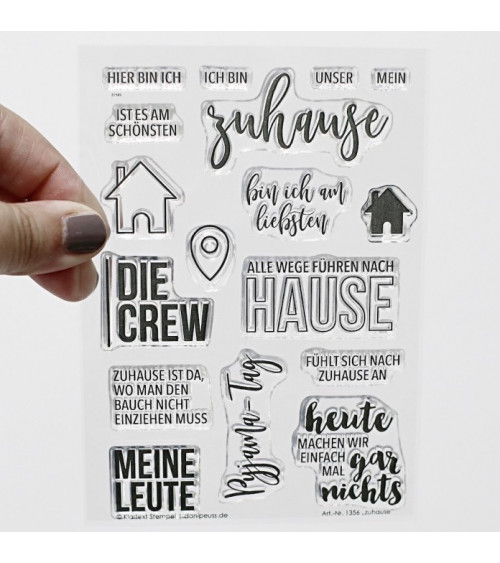 HIER BIN ICH
ICH BIN
UNSER
MEIN
IST ES AM
SCHÖNSTEN
zuhause
bin ich am
liebsten
DIE
CREW
ALLE WEGE FÜHREN NACH
HAUSE
ZUHAUSE IST DA,
WO MAN DEN
BAUCH NICHT
EINZIEHEN MUSS
Pyjama-Tag
FÜHLT SICH NACH
ZUHAUSE AN
heute
MACHEN WIR
EINFACH gar
MAL
nichts
MEINE
LEUTE
© Klartext Stempel | danipeuss.de
Art.-Nr. 1356 „zuhause“